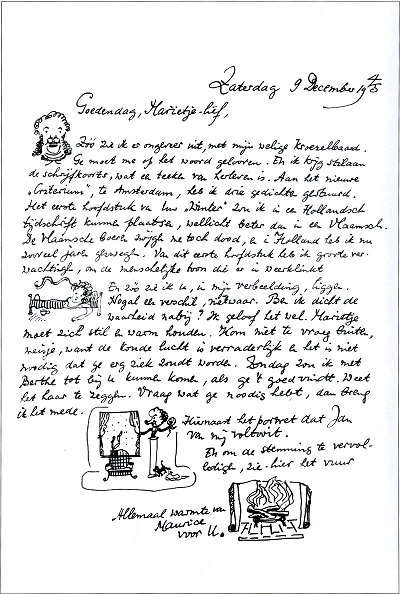 Zaterdag 9 December 1945
Goedendag, Marietje-lief,
Zóó zie ik er ongeveer uit, met mijn welige kroezelbaard.
Ge moet me op het woord gelooven. En ik krijg stilaan
de schrijfkoorts, wat een teeken van herleven is. Aan het nieuwe
"Criterium", te Amsterdam, heb ik drie gedichten gestuurd.
Het eerste hoofdstuk van "Winter" zou ik in een Hollandsch
tijdschrift kunnen plaatsen, wellicht beter dan in een Vlaamsch.
De Vlaamsche boeren zwijgen me toch dood, en in Holland heb ik nu
zooveel jaren gezwegen. Van dit eerste hoofdstuk heb ik groote ver-
wachtingen, om de menschelijke toon die er in weerklinkt
En zóó zie ik u, in mijn verbeelding, liggen.
Nogal een verschil, nietwaar. Ben ik dicht de
waarheid nabij? Ik geloof het wel. Marietje
moet zich stil en warm houden. Kom niet te vroeg buiten,
meisje, want de koude lucht is verraderlijk en het is niet
noodig dat ge erg ziek zoudt worden. Zondag zou ik met
Berthe tot bij u kunnen komen, als ge 't goed vindt. Weet
het haar te zeggen. Vraag wat ge noodig hebt, dan breng
ik het mede.
Hiernaast het portret dat Jan
van mij voltooit.
En om de stemming te vervol-
ledigen, zie-hier het vuur
Allemaal warmte van
Maurice
voor U.